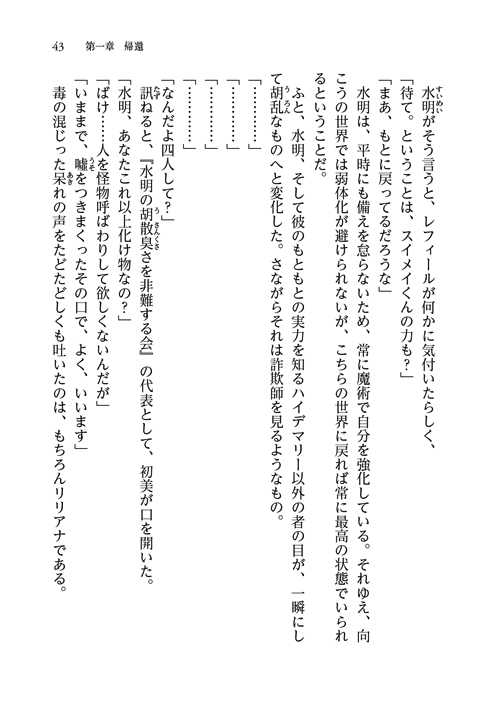 43　第一章　帰還
水明がそう言うと、レフィールが何かに気付いたらしく、
「待て。ということは、スイメイくんの力も？」
「まあ、もとに戻ってるだろうな」
水明は、平時にも備えを怠らないため、常に魔術で自分を強化している。それゆえ、向
こうの世界では弱体化が避けられないが、こちらの世界に戻れば常に最高の状態でいられ
るということだ。
ふと、水明、そして彼のもともとの実力を知るハイデマリー以外の者の目が、一瞬にし
て胡乱なものへと変化した。さながらそれは詐欺師を見るようなもの。
「…………」
「…………」
「…………」
「…………」
「なんだよ四人して？」
訊ねると、『水明の胡散臭さを非難する会』の代表として、初美が口を開いた。
「水明、あなたこれ以上化け物なの？」
「ばけ……人を怪物呼ばわりして欲しくないんだが」
「いままで、嘘をつきまくったその口で、よく、いいます」
毒の混じった呆れの声をたどたどしくも吐いたのは、もちろんリリアナである。